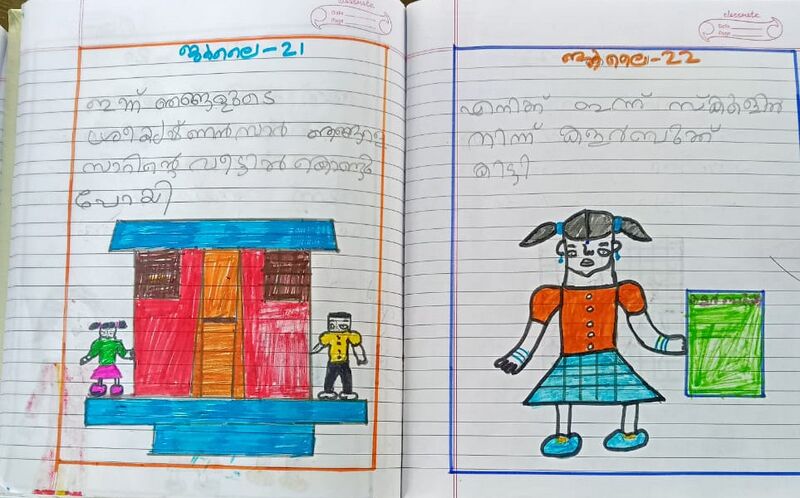 classmate
Date
Page
ജൂലൈ-21
ഇന്ന് ഞങ്ങളുടെ
ഞങ്ങളെ
സാറിന്റെ വീട്ടിൽ കൊണ്ടു
പോയി
classmate
Date
Page
ജൂലൈ-22
എനിക്ക് ഇന്ന് സ്കൂളിൽ
നിന്ന് കളർബുക്ക്
കിട്ടി